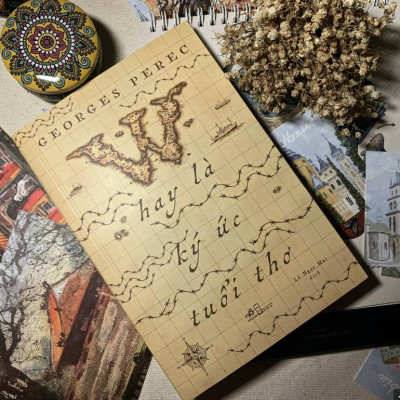 GEORGES PEREC
W
hay là
ký ức
tuổi thơ
Lê Ngọc Mai
dịch